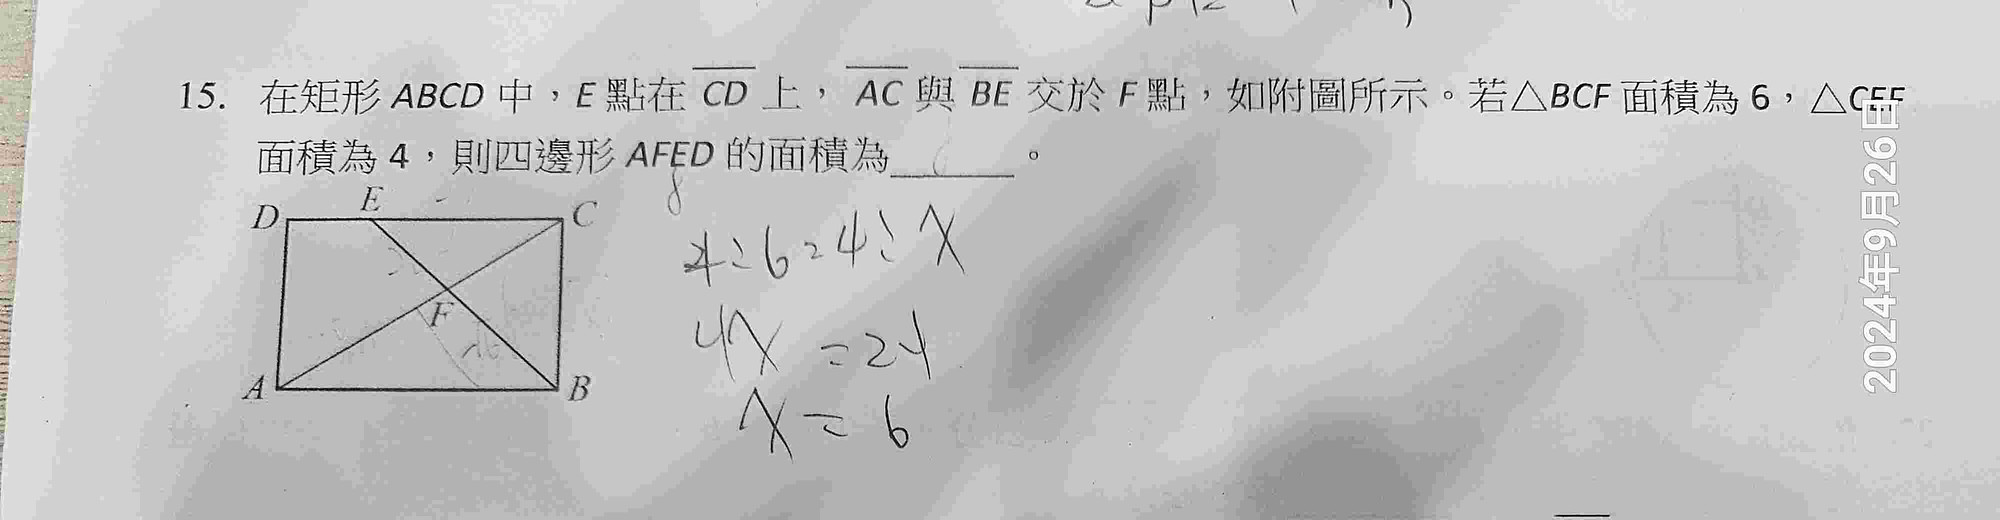 15. 在矩形 ABCD 中，E 點在 CD 上，AC 與 BE 交於 F 點，如附圖所示。若△BCF 面積為 6，△CEF
面積為 4，則四邊形 AFED 的面積為______。
D E C
F
A B
4:6=4:x
4x=24
x=6
2024年9月26日